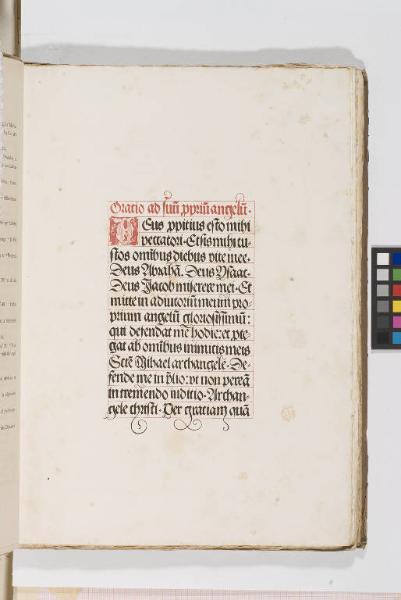 Oratio ad suū ꝓpriū angelū.
DEus ꝓpitius esto mihi
peccatori. Et sis mihi cu-
stos omībus diebus vite mee.
Deus Abrahā. Deus Ysaac.
Deus Jacob miserere mei. Et
mitte in adiutoriū meum pro-
prium angelū gloriosissimū:
qui defendat me hodie: et ꝓte-
gat ab omībus inimicis meis
Scte Mihael archangele. De-
fende me in p̄lio: vt non pereā
in tremendo iuditio. Archan-
gele christi. Per gratiam quā